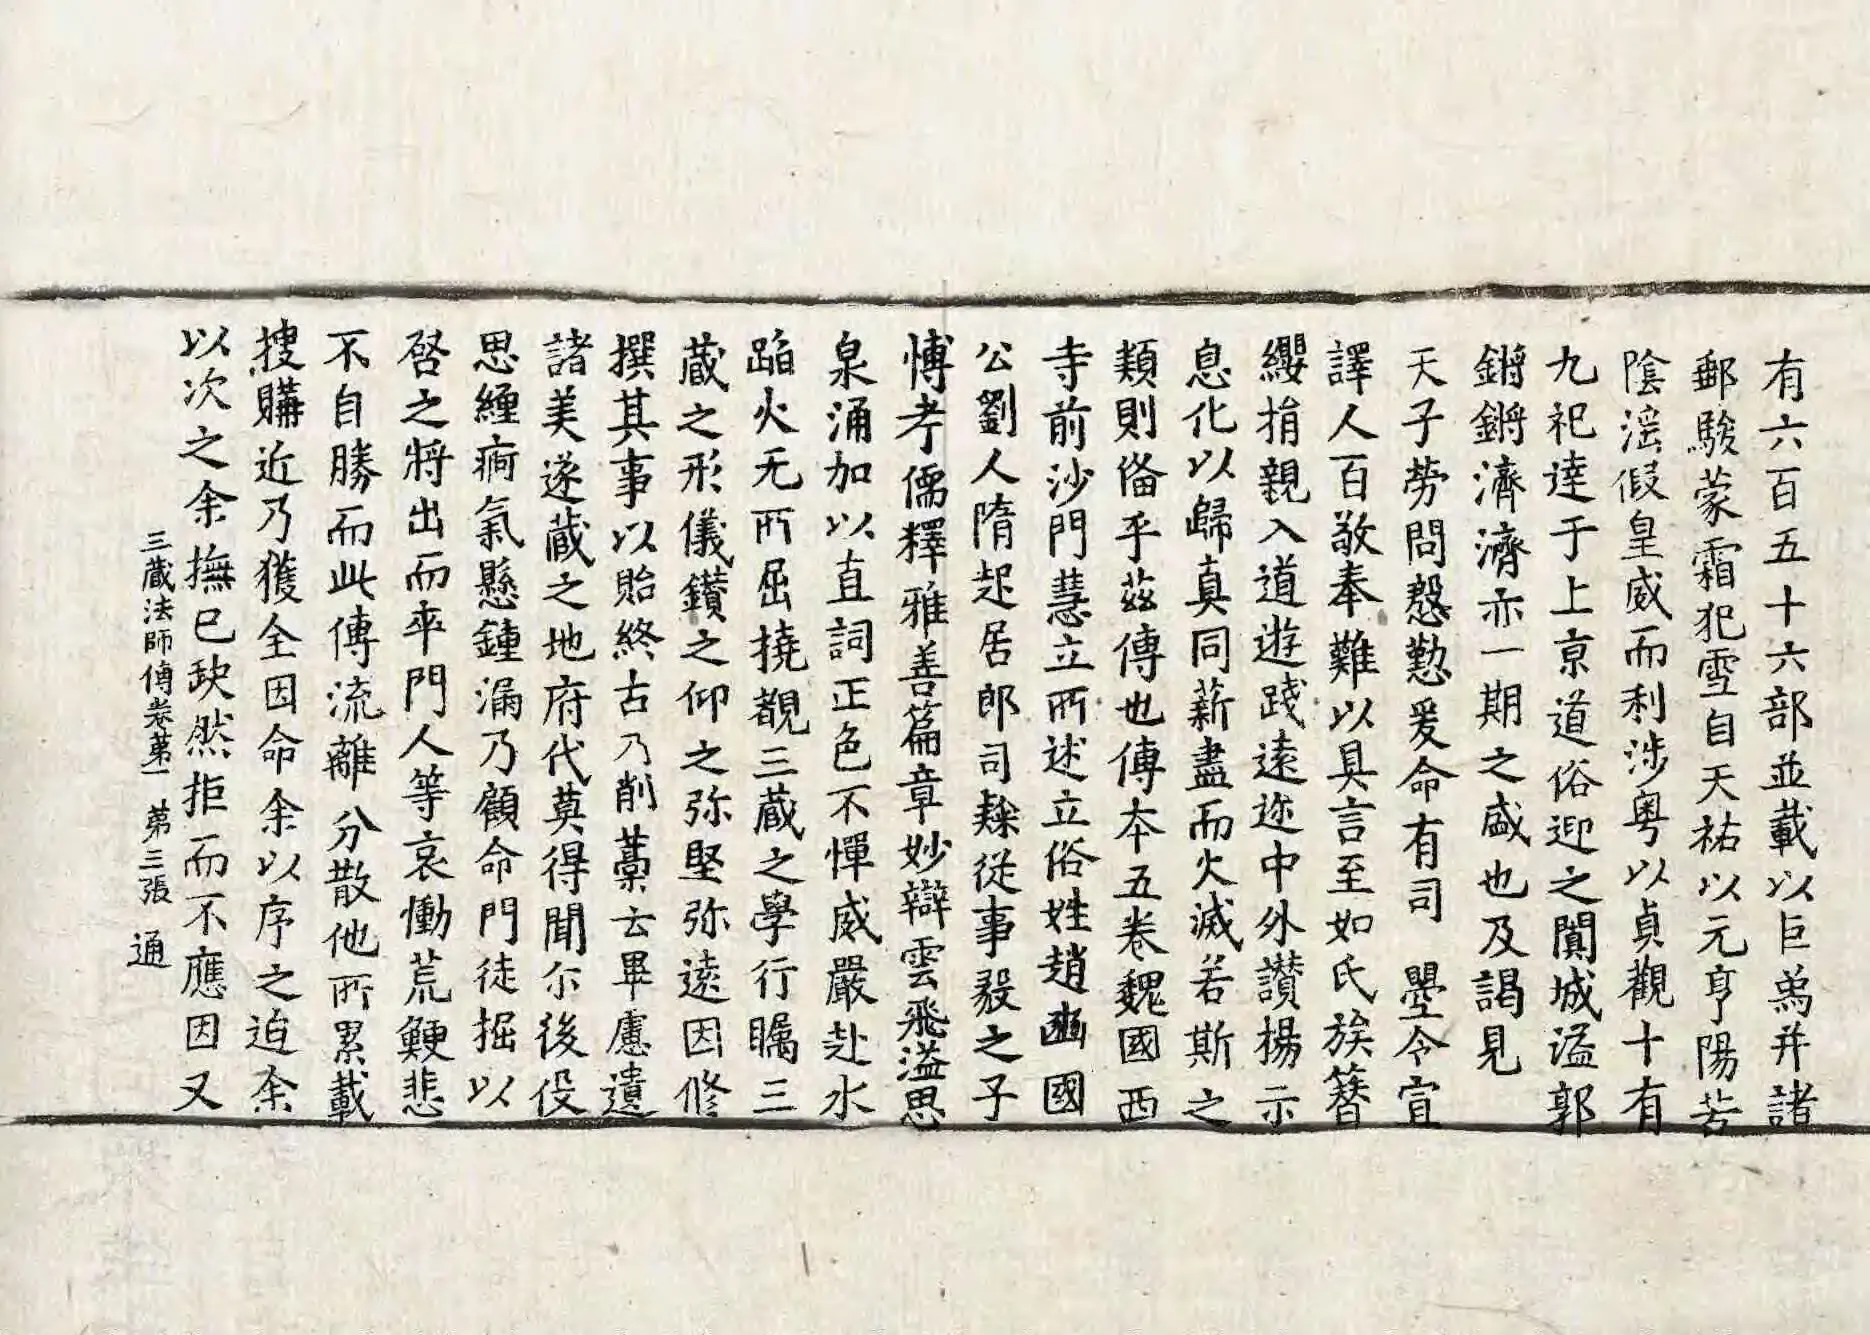 有六百五十六部並載以巨烏并諸
郵駿蒙霜犯雪自天祐以元亨陽苦
陰滛假皇威而利涉粤以貞觀十有
九祀達于上京道俗迎之闐城溢郭
鏘鏘濟濟亦一期之盛也及謁見
天子勞問慇懃爰命有司瞾令宣
譯人百敬奉難以具言至如氏族簪
纓捐親入道遊踐遠迩中外讃揚示
息化以歸真同薪盡而火滅若斯之
類則俻乎茲傳也傳夲五卷魏國西
寺前沙門慧立所述立俗姓趙豳國
公劉人隋起居郎司隸從事毅之子
愽考儒釋雅善篇章妙辯雲飛溢思
泉涌加以直詞正色不憚威嚴赴水
蹈火无所屈撓觀三蔵之學行矚三
蔵之形儀鑽之仰之弥堅弥遠因修
撰其事以貽終古乃削藁云畢慮遺
諸美遂蔵之地府代莫得聞尒後役
思纏痾氣懸鍾漏乃顧命門徒掘以
啓之將出而卒門人等哀慟荒鯁悲
不自勝而此傳流離分散他所累載
搜購近乃獲全因命余以序之迫余
以次之余撫已缺然拒而不應因又
三蔵法師傳卷第一 第三張 通